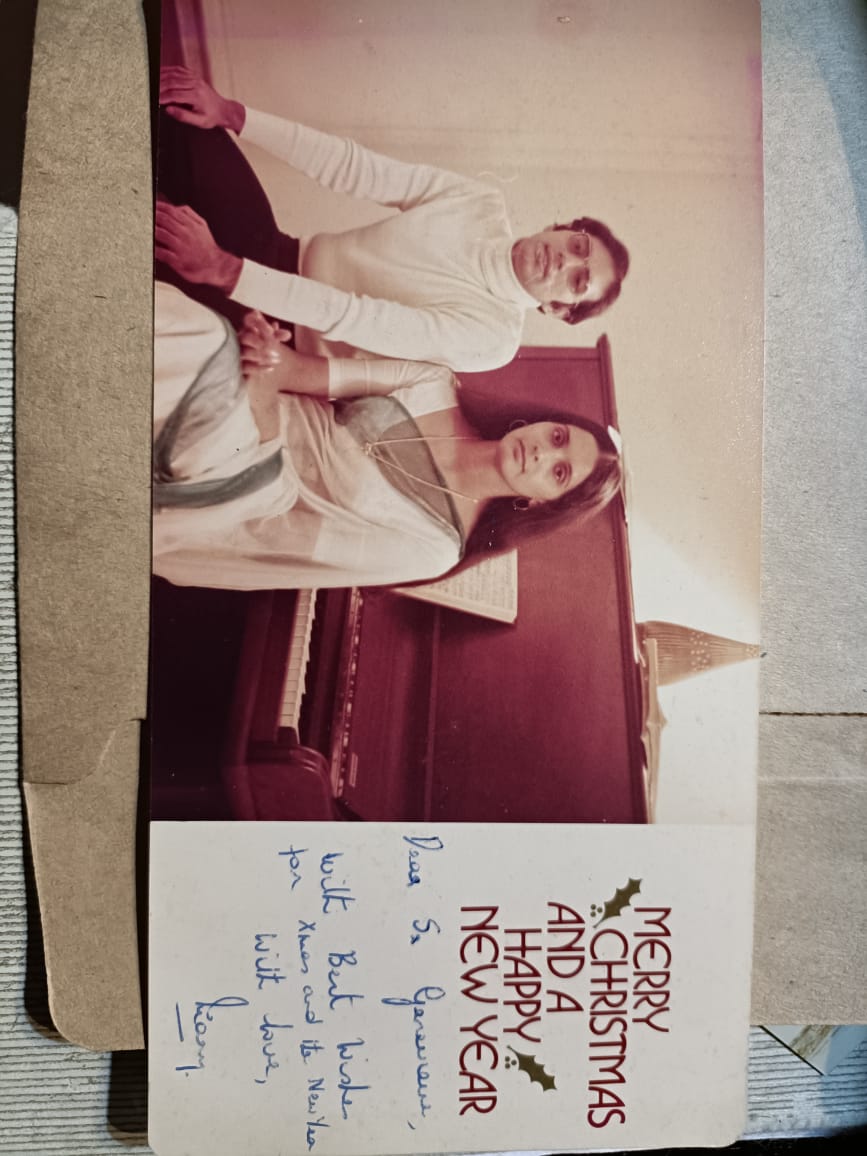 MERRY
CHRISTMAS
AND A
HAPPY
NEW YEAR
Dear Sr Genevieve,
With Best Wishes
for Xmas and the New Year
With love,
Mary.